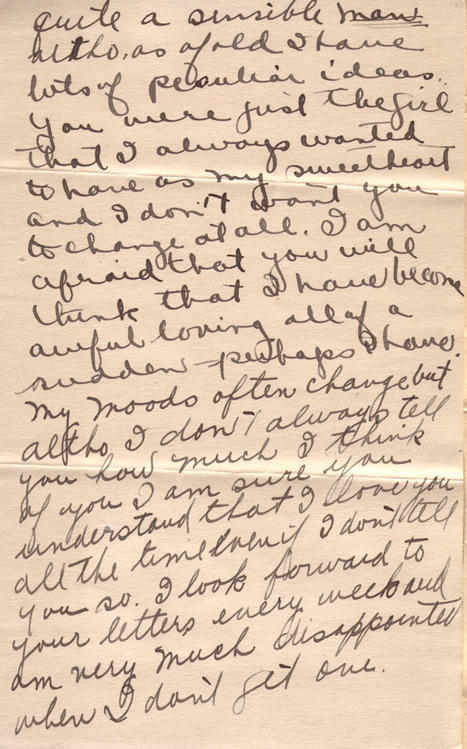 quite a sensible man
altho, as of old I have
lots of peculiar ideas.
You were just the girl
that I always wanted
to have as my sweetheart
and I don't want you
to change at all. I am
afraid that you will
think that I have become
awful loving all of a
sudden - perhaps I have.
My moods often change but
altho I don't always tell
you how much I think
of you I am sure you
understand that I love you
all the time even if I don't tell
you so. I look forward to
your letters every week and
am very much disappointed
when I don't get one.